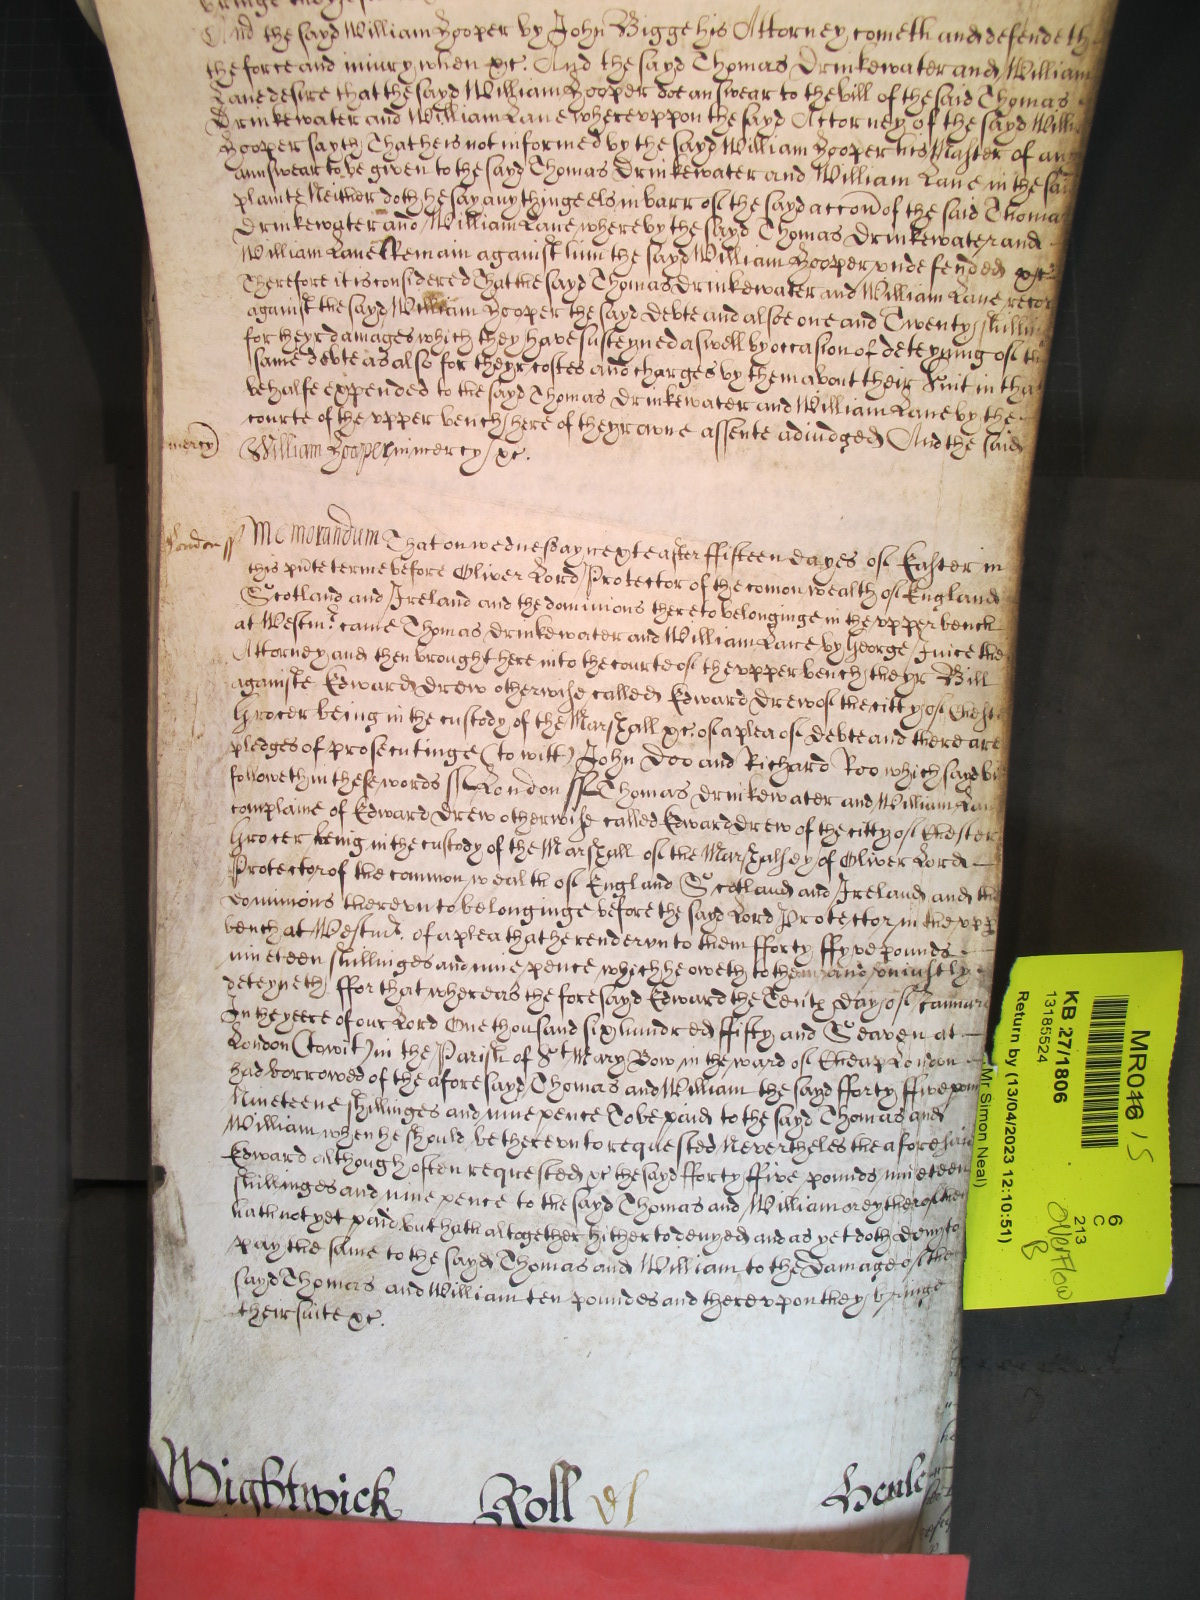 And the sayd William Hooper by John Bigge his Attorney cometh and defendeth
the force and iniury when &c. And the sayd Thomas Drinkewater and William
Lane desire that the sayd William Hooper doe answear to the bill of the said Thomas
Drinkewater and William Lane whereuppon the sayd Attorney of the sayd Willi
Hooper sayth That he is not informed by the sayd William Hooper his Master of any
annswear to be given to the sayd Thomas Drinkewater and William Lane in the said
plainte Neither doth he say any thinge els in barr of the sayd accon of the said Thomas
Drinkewater and William Lane whereby the sayd Thomas Drinkewater and
William Lane Remain against him the sayd William Hooper undefended &c
Therefore it is considered That the sayd Thomas Drinkewater and William Lane recov
against the sayd William Hooper the sayd Debte and alsoe one and Twenty shillin
for theyr damages which they have susteyned aswell by occasion of deteyning of th
same debte as also for theyr costes and charges by them about their Suit in that
behalfe expended to the sayd Thomas Drinkewater and William Lane by the
courte of the upper bench here of theyr owne assente adiudged And the said
mercy William Hooper in mercy &c.
London ss Memorandum That on wednesday nexte after ffifteen dayes of Easter in
this pnte terme before Oliver Lord Protector of the comon wealth of England
Scotland and Ireland and the dominions thereto belonginge in the upper bench
at Westmr. came Thomas Drinkewater and William Lane by George Juice the
Attorney and then brought here into the courte of the upper bench theyr Bill
againste Edward Drew otherwise called Edward Drew of the citty of Cheste
Grocer being in the custody of the Marshall &c. of a plea of Debte and there are
pledges of prosecutinge (to witt) John Doo and Richard Roo which sayd bi
followeth in these words ss London ss Thomas Drinkewater and William Lan
complaine of Edward Drew otherwise called Edward Drew of the citty of Chester
Grocer being in the custody of the Marshall of the Marshalsey of Oliver Lord
Protector of the common wealth of England Scotland and Ireland and the
dominions thereunto belonginge before the sayd Lord Protector in the upp
bench at Westmr. of a plea that he render unto them fforty ffyve pounds
nineteen shillinges and nine pence which he oweth to them and uniustly
deteyneth ffor that whereas the foresayd Edward the Tenth day of Januar
In the yeere of our Lord One thousand six hundred ffifty and Seaven at
London (to wit) in the Parish of St Mary Bow in the ward of Cheap London
had borrowed of the aforesayd Thomas and William the sayd fforty ffive poun
Nineteene shillinges and nine pence To be paid to the sayd Thomas and
William when he should be thereunto requested Nevertheles the aforesaid
Edward although often requested &c the sayd fforty ffive pounds nineteen
shillinges and nine pence to the sayd Thomas and William or eyther of them
hath not yet paid but hath altogether hitherto denyed and as yet doth deny to
pay the same to the sayd Thomas and William to the Damage of the
sayd Thomas and William ten poundes and thereupon they bringe
their suite &c.
Wightwick Roll Henle
MR016 15
KB 27/1806
13185524
Return by (13/04/2023 12:10:51)
(Mr Simon Neal)
6
C
213
Overflow
B